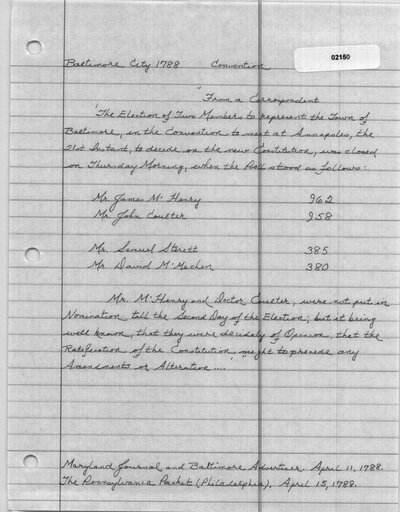 02150
Baltimore City 1788 Convention
"From a Correspondent
'The Election of Two Members to represent the Town of
Baltimore, in the Convention to meet at Annapolis, the
21st Instant, to decide on the new Constitution, was closed
on Thursday Morning, when the Poll stood as follows:
Mr. James McHenry 962
Mr John Coulter 958
Mr. Samuel Sterett 385
Mr. David McMechen 380
Mr. McHenry and Doctor Coulter, were not put in
Nomination till the Second Day of the Election; but it being
well known, that they were decidedly of Opinion, that the
Ratification of the Constitution ought to precede any
Amendments or Alteration ....'
Maryland Journal and Baltimore Advertiser. April 11, 1788.
The Pennsylvania Packet (Philadelphia), April 15, 1788.